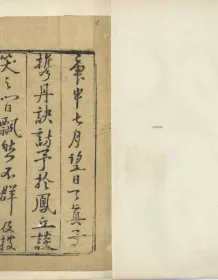 庚申七月望日了真子
携丹訣訪予於鳳丘談
笑之間飄然不群伋搜